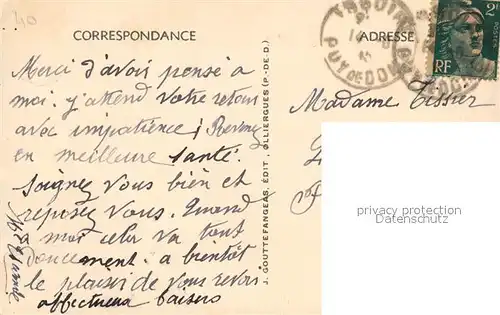 40
CORRESPONDANCE
ADRESSE
2F
RF
PUY DE DOME
Merci d'avoir pensé a
moi. j'attend votre retour
avec impatience; Revenez
en meilleure santé.
Soignez vous bien et
reposez vous. Quand
a moi cela va tout
doucement a bientôt
le plaisir de vous revoir
affectueux baisers
J. GOUTTEFANGEAS, ÉDIT., OLLIERGUES (P.-DE-D.)
Madame Tissier
privacy protection
Datenschutz